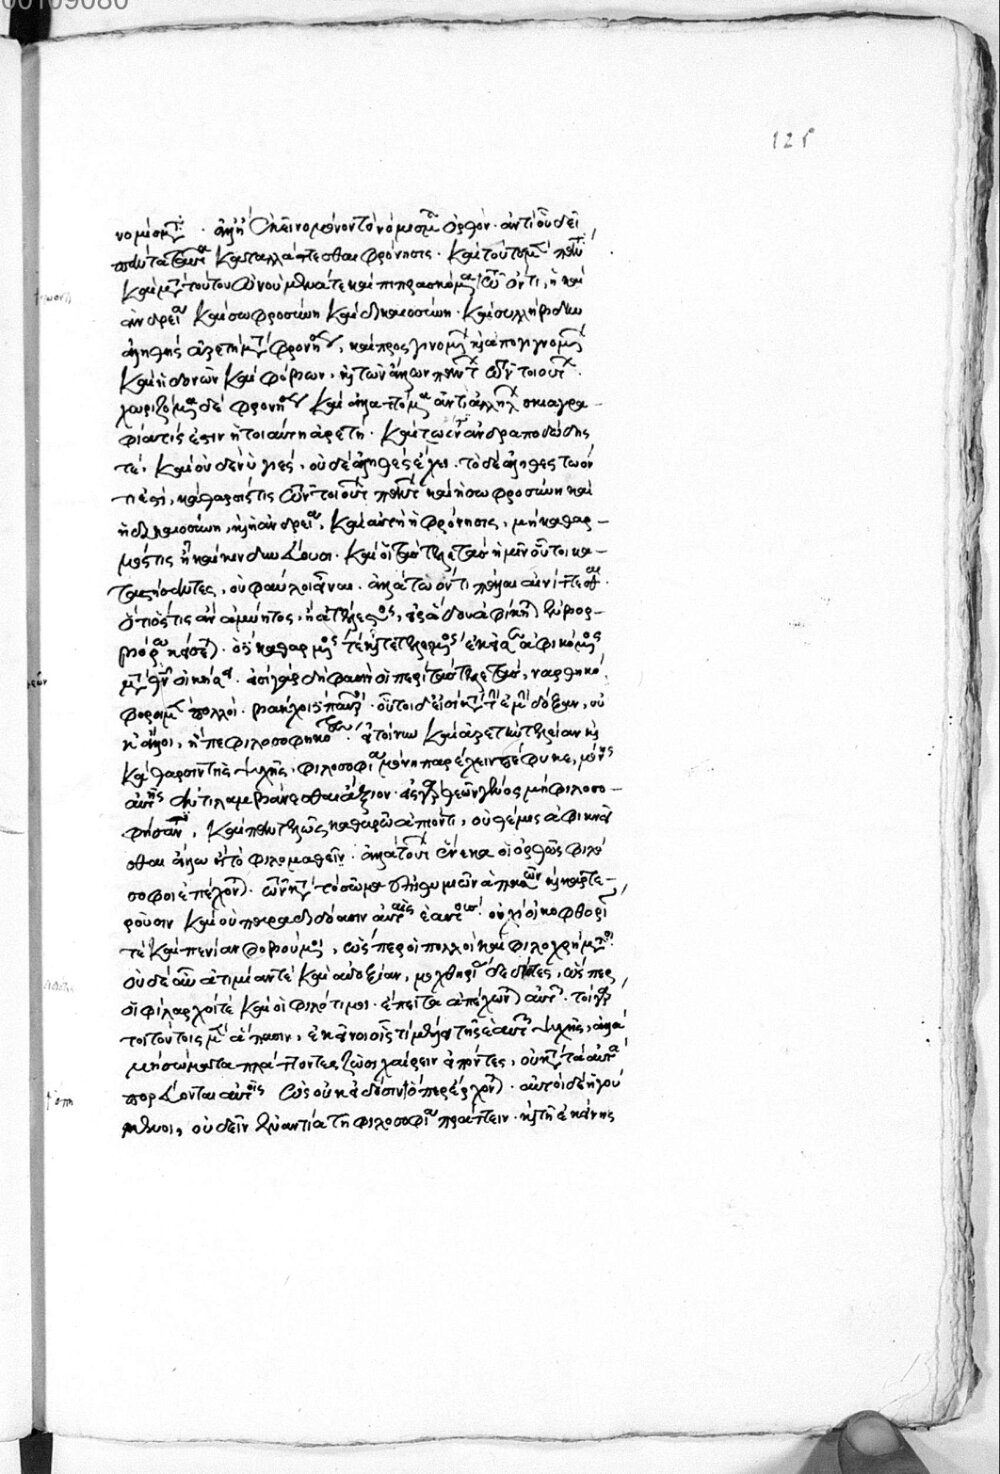 νομίσματα. ἀλλ' ἢ ἐκεῖνο μόνον τὸ νόμισμα ὀρθόν. ἀντὶ οὗ δεῖ
πάντα ταῦτα καταλλάττεσθαι φρόνησις. καὶ τούτου μὲν πάντα
καὶ μετὰ τούτου ὠνούμενά τε καὶ πιπρασκόμενα τῷ ὄντι, ἢ καὶ
ἀνδρεία καὶ σωφροσύνη καὶ δικαιοσύνη. καὶ συλλήβδην
ἀληθὴς ἀρετὴ μετὰ φρονήσεως, καὶ προσγινομένων καὶ ἀπογιγνομένων
καὶ ἡδονῶν καὶ φόβων, καὶ τῶν ἄλλων πάντων τῶν τοιούτων.
χωριζόμενα δὲ φρονήσεως καὶ ἀλλαττόμενα ἀντὶ ἀλλήλων σκιαγρα-
φία τίς ἐστιν ἡ τοιαύτη ἀρετή. καὶ τῷ ὄντι ἀνδραποδώδης
τέ. καὶ οὐδὲν ὑγιές, οὐδὲ ἀληθὲς ἔχει. τὸ δὲ ἀληθὲς τῷ ὄν
τι ἐστὶ, κάθαρσίς τις τῶν τοιούτων πάντων καὶ ἡ σωφροσύνη καὶ
ἡ δικαιοσύνη, καὶ ἡ ἀνδρεία, καὶ αὐτὴ ἡ φρόνησις, μὴ καθαρ-
μός τις ἢ καὶ κινδυνεύουσι. καὶ οἱ τὰς τελετὰς ἡμῖν οὗτοι κα-
ταστήσαντες, οὐ φαῦλοι εἶναι. ἀλλὰ τῷ ὄντι πάλαι αἰνίττεσθαι.
ὅτι ὃς τις ἂν ἀμύητος, ἢ ἀτέλεστος, εἰς ᾅδου ἀφίκηται ἐν βορ-
βόρῳ κείσεται. ὁ δὲ κεκαθαρμένος τὲ καὶ τετελεσμένος ἐκεῖσε ἀφικόμενος
μετὰ θεῶν οἰκήσει. εἰσὶ γὰρ δή φασὶ οἱ περὶ τὰς τελετὰς, ναρθηκο
φόροι μὲν πολλοί. βάκχοι δὲ παῦροι. οὗτοι δέ εἰσι κατὰ τὴν ἐμὴν δόξαν, οὐ
κ ἄλλοι, ἢ οἱ πεφιλοσοφηκότες ὀρθῶς. εἰ τοίνυν καὶ ἀρετὴν τελείαν καὶ
κάθαρσιν τῆς ψυχῆς, φιλοσοφία μόνη παρέχειν πέφυκε, μόνης
αὐτῆς ἀντιλαμβάνεσθαι ἄξιον. εἰς γὰρ θεῶν γένος μὴ φιλοσο-
φήσαντι, καὶ παντελῶς καθαρῷ ἀπιόντι, οὐ θέμις ἀφικνεῖ
σθαι ἄλλῳ ἢ τῷ φιλομαθεῖ. ἀλλὰ τούτων ἕνεκα οἱ ὀρθῶς φιλό
σοφοι ἀπέχονται. τῶν κατὰ τὸ σῶμα ἐπιθυμιῶν ἁπασῶν καὶ καρτε-
ροῦσιν καὶ οὐ παραδιδόασιν αὐταῖς ἑαυτούς. οὐχὶ οἰκοφθορίαν
τὲ καὶ πενίαν φοβούμενοι, ὥσπερ οἱ πολλοὶ καὶ φιλοχρήματοι.
οὐδὲ αὖ ἀτιμίαν τὲ καὶ ἀδοξίαν, μοχθηρίας δεδιότες, ὥσπερ
οἱ φίλαρχοί τε καὶ οἱ φιλότιμοι. ἔπειτα ἀπέχονται αὐτῶν. τοιγὰρ
τοι τούτοις μὲν ἅπασιν, ἐκεῖνοι οἷς τί μέλει τῆς ἑαυτῶν ψυχῆς, ἀλλὰ
μὴ σώματα πλάττοντες ζῶσι χαίρειν εἰπόντες, οὐ κατὰ ταὐτὰ
πορεύονται αὐτοῖς ὡς οὐκ εἰδόσιν ὅπῃ ἔρχονται. αὐτοὶ δὲ ἡγού
μενοι, οὐ δεῖν ἐναντία τῇ φιλοσοφίᾳ πράττειν. καὶ τῇ ἐκείνης